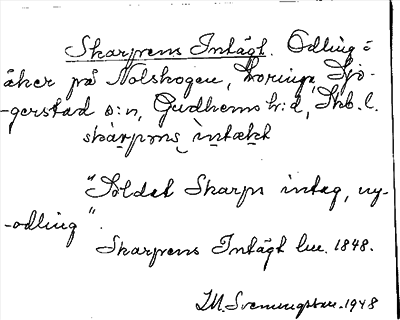 Skarpens Intägt. Odling =
åker på Nolskogen, Sjö-
-gerstad s:n, Gudhems h:d, Skb. l.
skarpəns intækt
"Soldat Skarps intag, ny-
-odling".
Skarpens Intägt lm. 1848.
I.M. Svenningsson. 1948